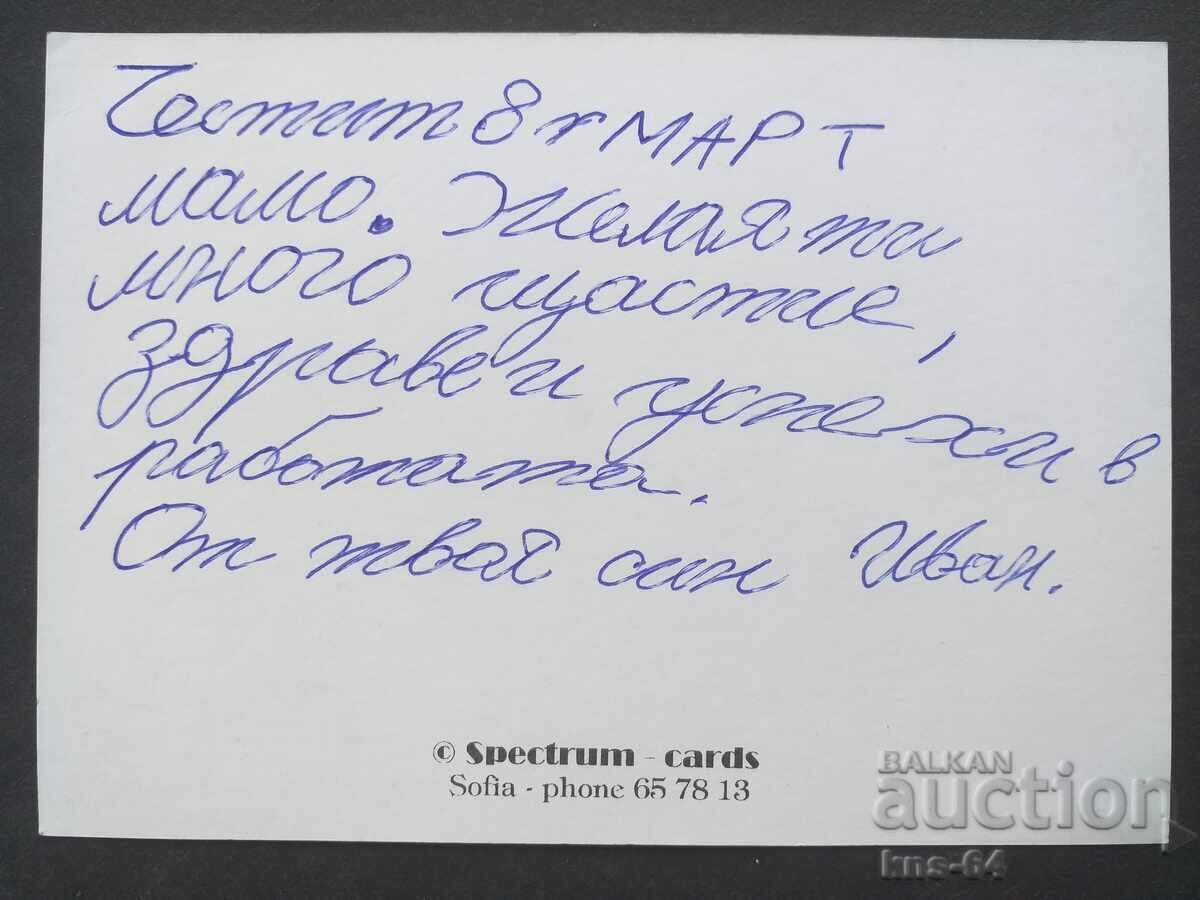 Честит 8ч МАРТ
мамо. Желая ти
много щастие,
здраве и успехи в
работата.
От твоя син Иван.
© Spectrum - cards
Sofia - phone 65 78 13
BALKAN
auction
kns-64